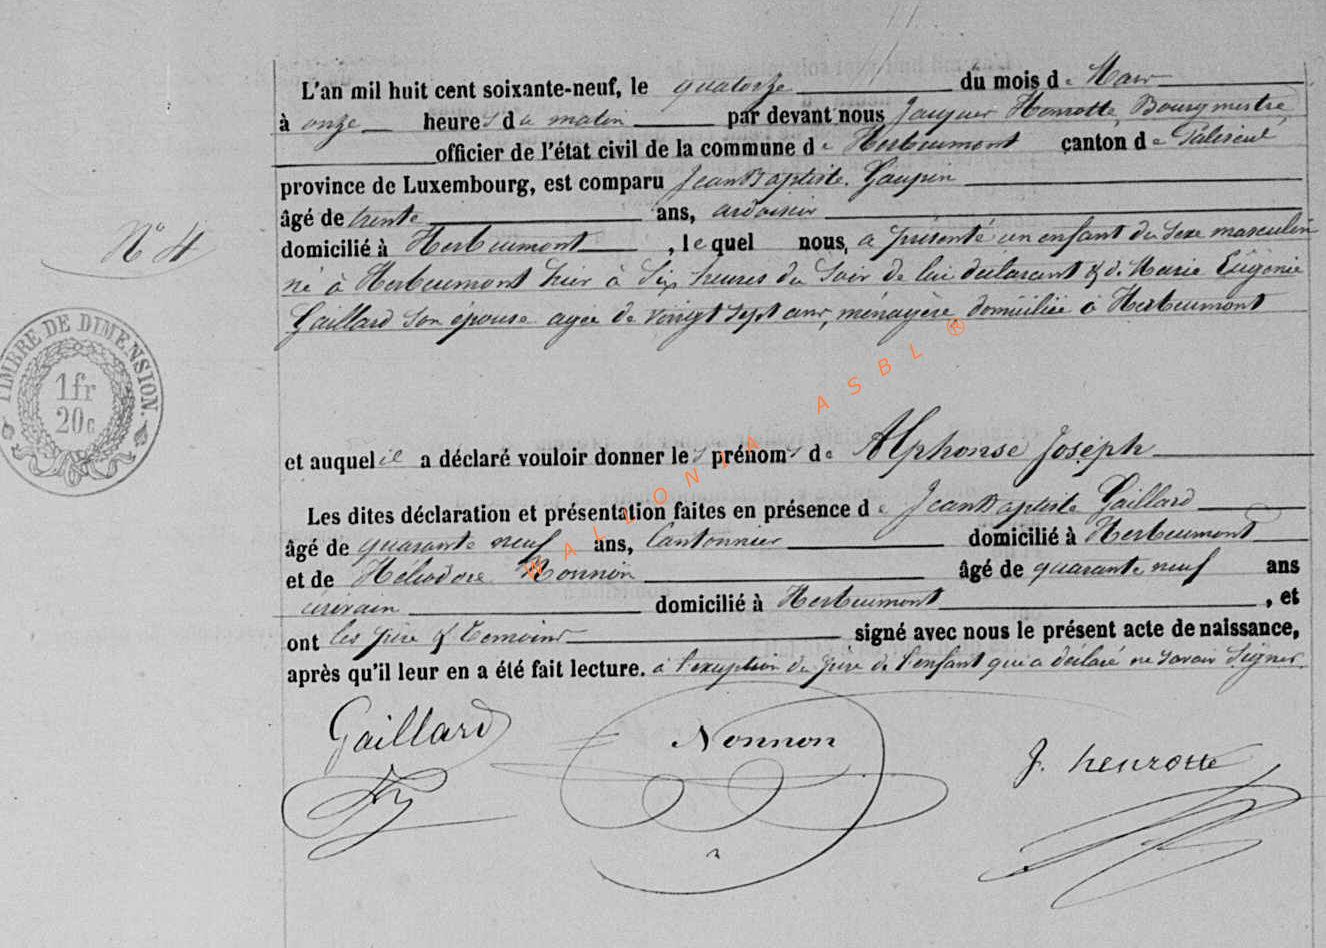 L'an mil huit cent soixante-neuf, le quatorze du mois de Mars
à onze heures du matin par devant nous Jacques Henrotte, Bourgmestre,
officier de l'état civil de la commune de Herbeumont canton de Paliseul,
province de Luxembourg, est comparu Jean Baptiste
âgé de trente ans, ardoisier
domicilié à Herbeumont, lequel nous, a présenté un enfant du sexe masculin
N° 4
né à Herbeumont hier à six heures du soir de lui déclarant & de Marie Eugénie
Gaillard son épouse agée de vingt sept ans, ménagère domiciliée à Herbeumont
TIMBRE DE DIMENSION.
1fr
20c
WALLONIA ASBL ®
et auquel il a déclaré vouloir donner les prénoms de Alphonse Joseph
Les dites déclaration et présentation faites en présence de Jean Baptiste Gaillard
âgé de quarante neuf ans, Cantonnier domicilié à Herbeumont
et de Héliodore Nonnon âgé de quarante neuf ans
écrivain domicilié à Herbeumont, et
ont les père & temoins signé avec nous le présent acte de naissance,
après qu'il leur en a été fait lecture. à l'exception du père de l'enfant qui a déclaré ne savoir signer.
Gaillard
Nonnon
J. henrotte